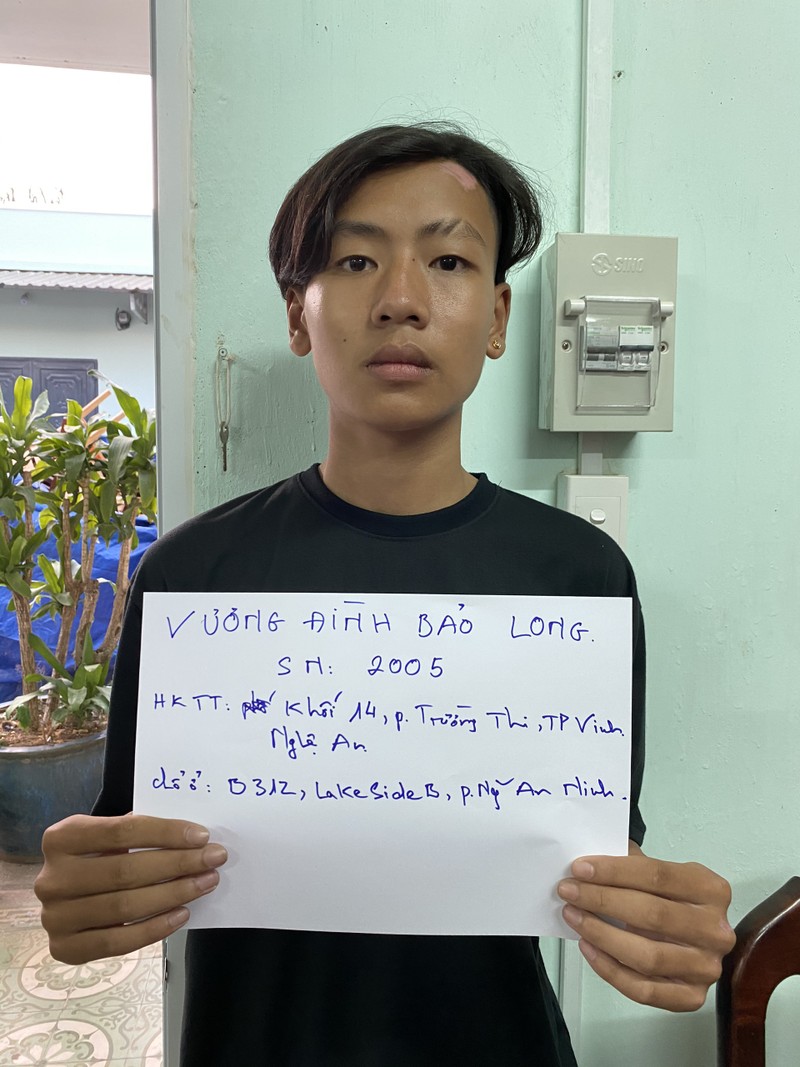 VƯƠNG ĐÌNH BẢO LONG.
SN: 2005
HKTT: Khối 14, p. Trường Thi, TP Vinh.
Nghệ An
chỗ ở: B312, LakeSideB, p. Ng~ An Ninh.
SINO